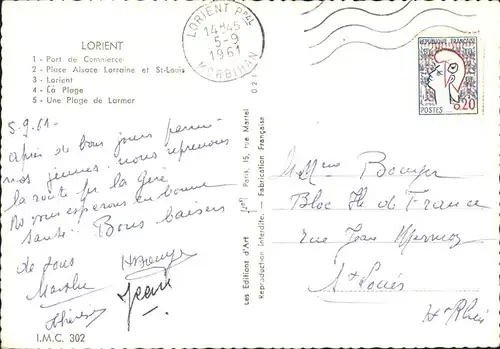 LORIENT
1 - Port de Commerce
2 - Place Alsace Lorraine et St-Louis
3 - Lorient
4 - La Plage
5 - Une Plage de Larmor
LORIENT Pal
14H45
5-9
1961
MORBIHAN
REPUBLIQUE FRANCAISE
0,20
POSTES
5.9.61-
Après de bons jours parmi
nos jeunes nous reprenons
la route
Ns vous espérons en bonne
santé. Bons baisers
de tous
Marthe
Jean
Thérèse
I.M.C. 302
Les Editions d'Art Paris, 15, rue Martel
Reproduction Interdite. - Fabrication Française
Bouyer
Bloc Ile de France
rue Jean Mermoz
St Louis
Ht Rhin